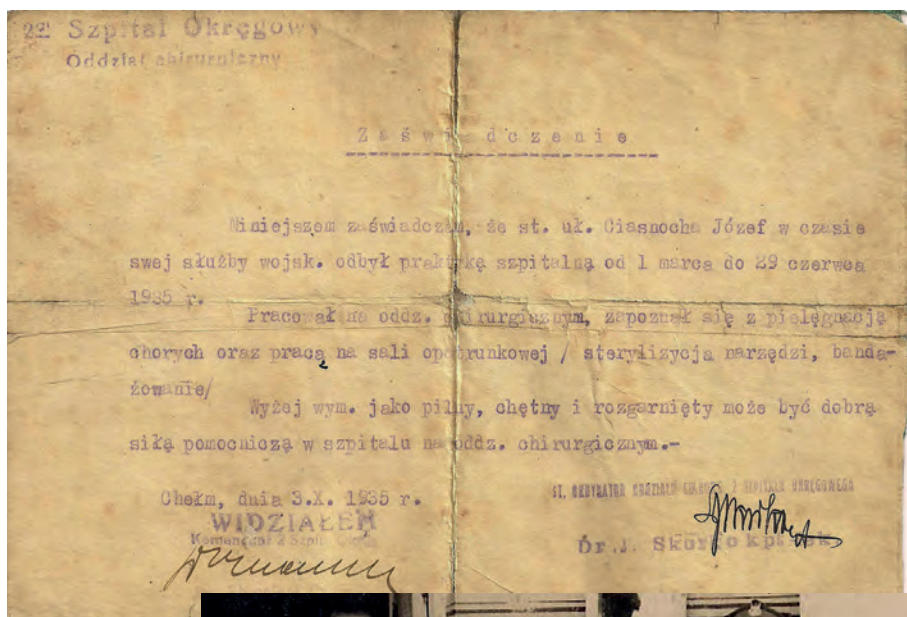 2gi Szpital Okręgowy
Oddział chirurgiczny
Zaświadczenie
Niniejszem zaświadczam, że st. uł. Ciasnocha Józef w czasie
swej służby wojsk. odbył praktykę szpitalną od 1 marca do 29 czerwca
1935 r.
Pracował na oddz. chirurgicznym, zapoznał się z pielęgnacją
chorych oraz pracą na sali opatrunkowej / sterylizycja narzędzi, banda-
żowanie/
Wyżej wym. jako pilny, chętny i rozgarnięty może być dobrą
siłą pomocniczą w szpitalu na oddz. chirurgicznym.-
Chełm, dnia 3.X. 1935 r.
ST. ORDYNATOR ODDZIAŁU CHIRURG. 2 SZPITALA OKRĘGOWEGO
WIDZIAŁEM
Komendant 2 Szpit. Okręg.
Dr. J.